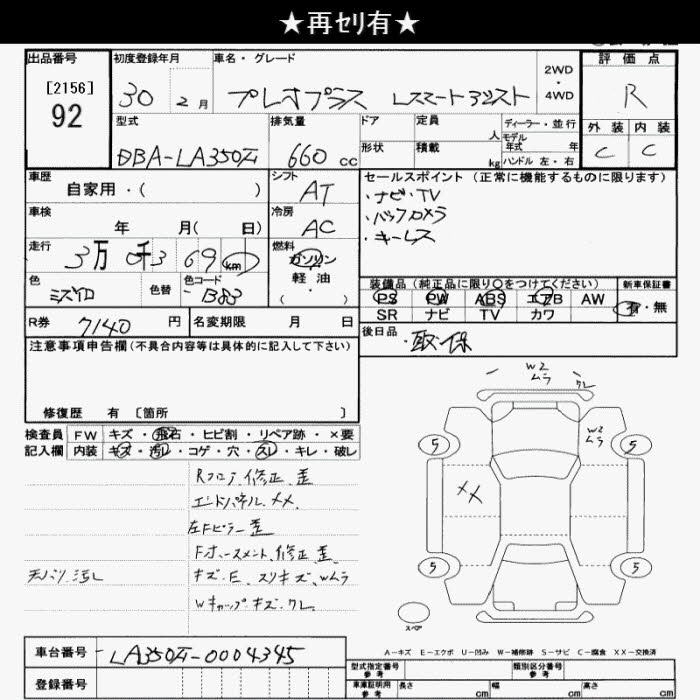 ★再ｾﾘ有★
出品番号 初度登録年月 車名・グレード 評価点
[2156]
92
30 2月 プレオプラス Lスマートアシスト
2WD
・
4WD
R
外装 内装
C C
型式 排気量 ドア 定員 人 ディーラー・並行
モデル
年式 年
DBA-LA350F 660cc 形状 積載 kg ハンドル 左・右
車歴 自家用・( ) シフト AT
セールスポイント (正常に機能するものに限ります)
・ナビ・TV
・バックカメラ
・キーレス
車検 年 月( 日) 冷房 AC
走行 3万 0千3 69 km 燃料 ガソリン
軽油
・( )
色 ミズイロ 色替 色コード B83
装備品 (純正品に限り○をつけてください) 新車保証書
PS PW ABS エアB AW 有・無
SR ナビ TV カワ
R券 7140 円 名変期限 月 日
後日品・取,保
注意事項申告欄(不具合内容等は具体的に記入して下さい)
修復歴 有 [箇所 ]
検査員 FW キズ・飛石・ヒビ割・リペア跡・×要
記入欄 内装 キズ・汚レ・コゲ・穴・スレ・キレ・破レ
Rフロア.修正.歪
エンドパネル.XX.
左Fピラー歪
Fホースメント.修正.歪.
天バリ汚レ キズ.E.スリキズ.Wムラ
Wキャップ.キズ.クレ.
W2
ムラ
クレ
W2
ムラ
5 5
XX
5 5
スペア
A-キズ E-エクボ U-凹み W-補修跡 S-サビ C-腐食 XX-交換済
車台番号 LA350F-0004345
登録番号
型式指定番号
参考
類別区分番号
参考
車庫証明用
参考
長さ cm 幅 cm 高さ cm